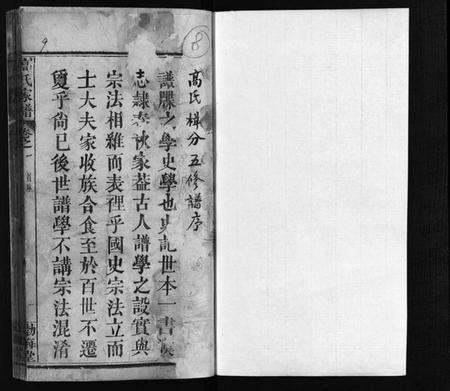 8
高氏梯分五修譜序
譜牒之學史學也史記世本一書
志隸 家葢古人譜學之設實與
宗法相維而表裡乎國史宗法立而
士大夫家收族合食至於百世不遷
夐乎尚已後世譜學不講宗法混淆
高氏家譜 卷之一
渤海堂